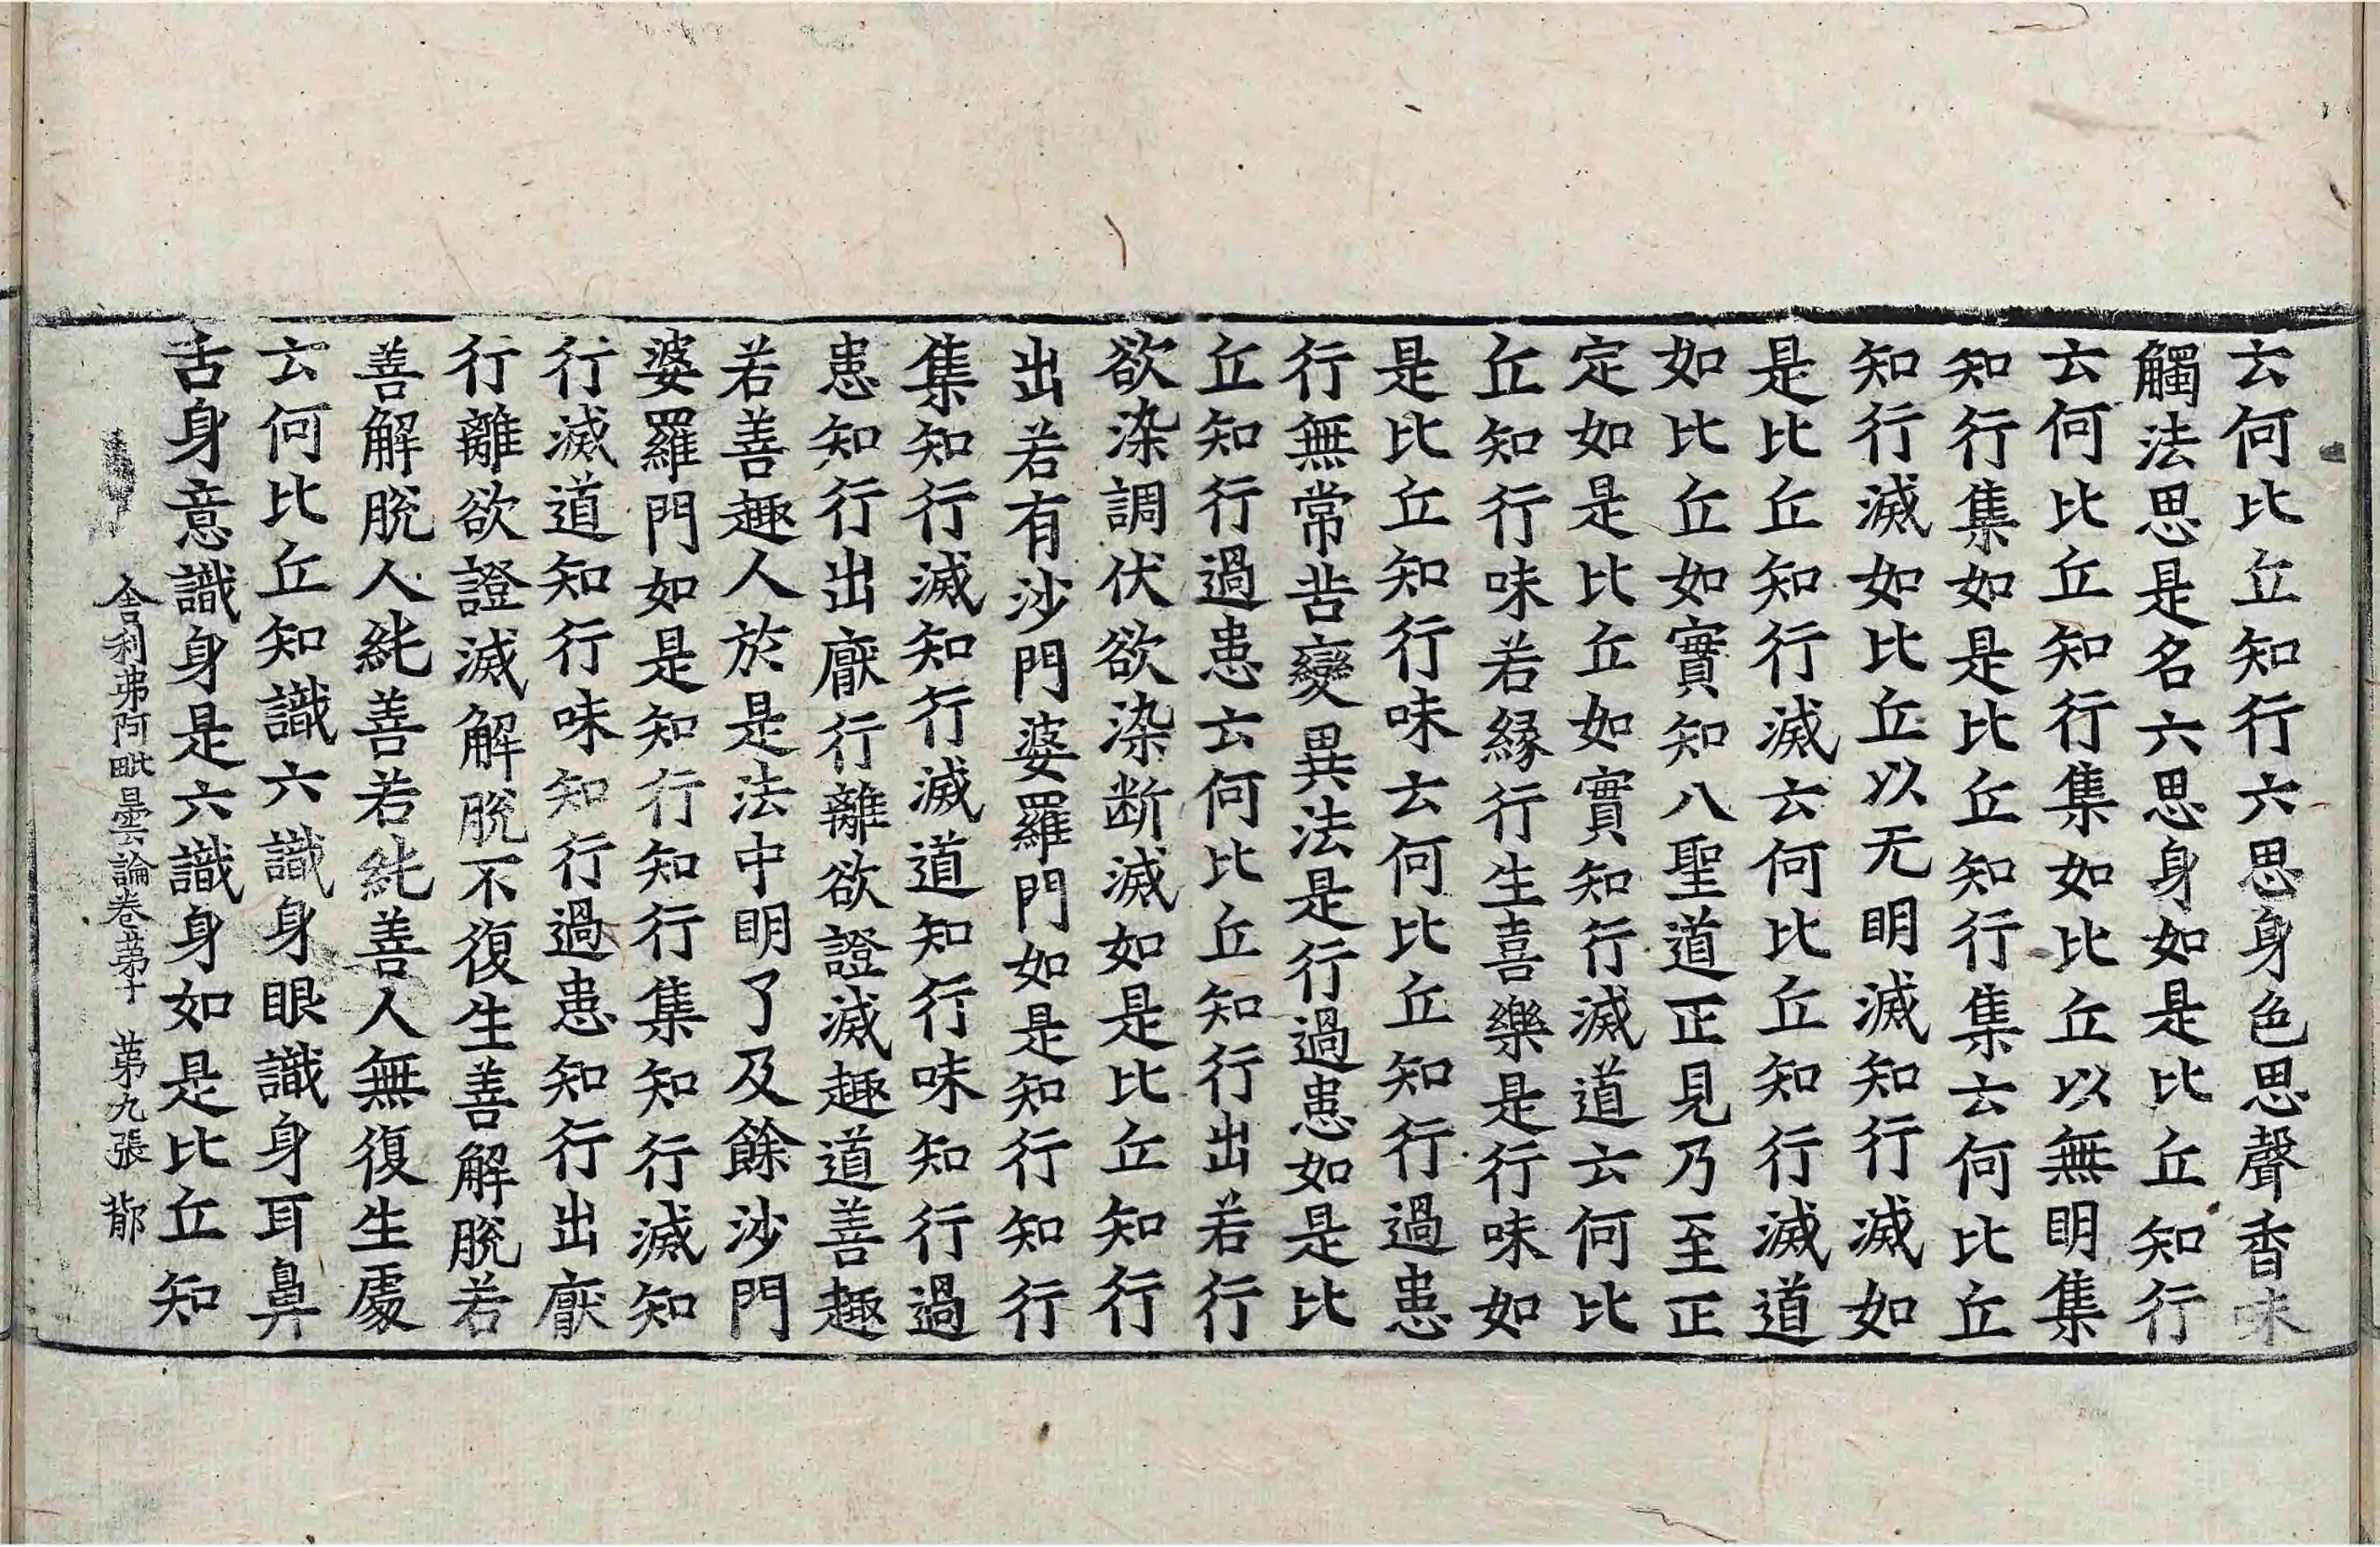 云何比丘知行六思身色思聲香味
觸法思是名六思身如是比丘知行
云何比丘知行集如比丘以無明集
知行集如是比丘知行集云何比丘
知行滅如比丘以无明滅知行滅如
是比丘知行滅云何比丘知行滅道
如比丘如實知八聖道正見乃至正
定如是比丘如實知行滅道云何比
丘知行味若縁行生喜樂是行味如
是比丘知行味云何比丘知行過患
行無常苦變異法是行過患如是比
丘知行過患云何比丘知行出若行
欲染調伏欲欲染断滅如是比丘知行
出若有沙門婆羅門如是知行知行
集知行滅知行滅道知行味知行過
患知行出厭行離欲證滅趣道善趣
若善趣人於是法中明了及餘沙門
婆羅門如是知行知行集知行滅知
行滅道知行味知行過患知行出厭
行離欲證滅解脫不復生善解脫若
善解脫人純善若純善人無復生處
云何比丘知識六識身眼識身耳鼻
舌身意識身是六識身如是比丘知
舍利弗阿毗曇論卷苐十 苐九張